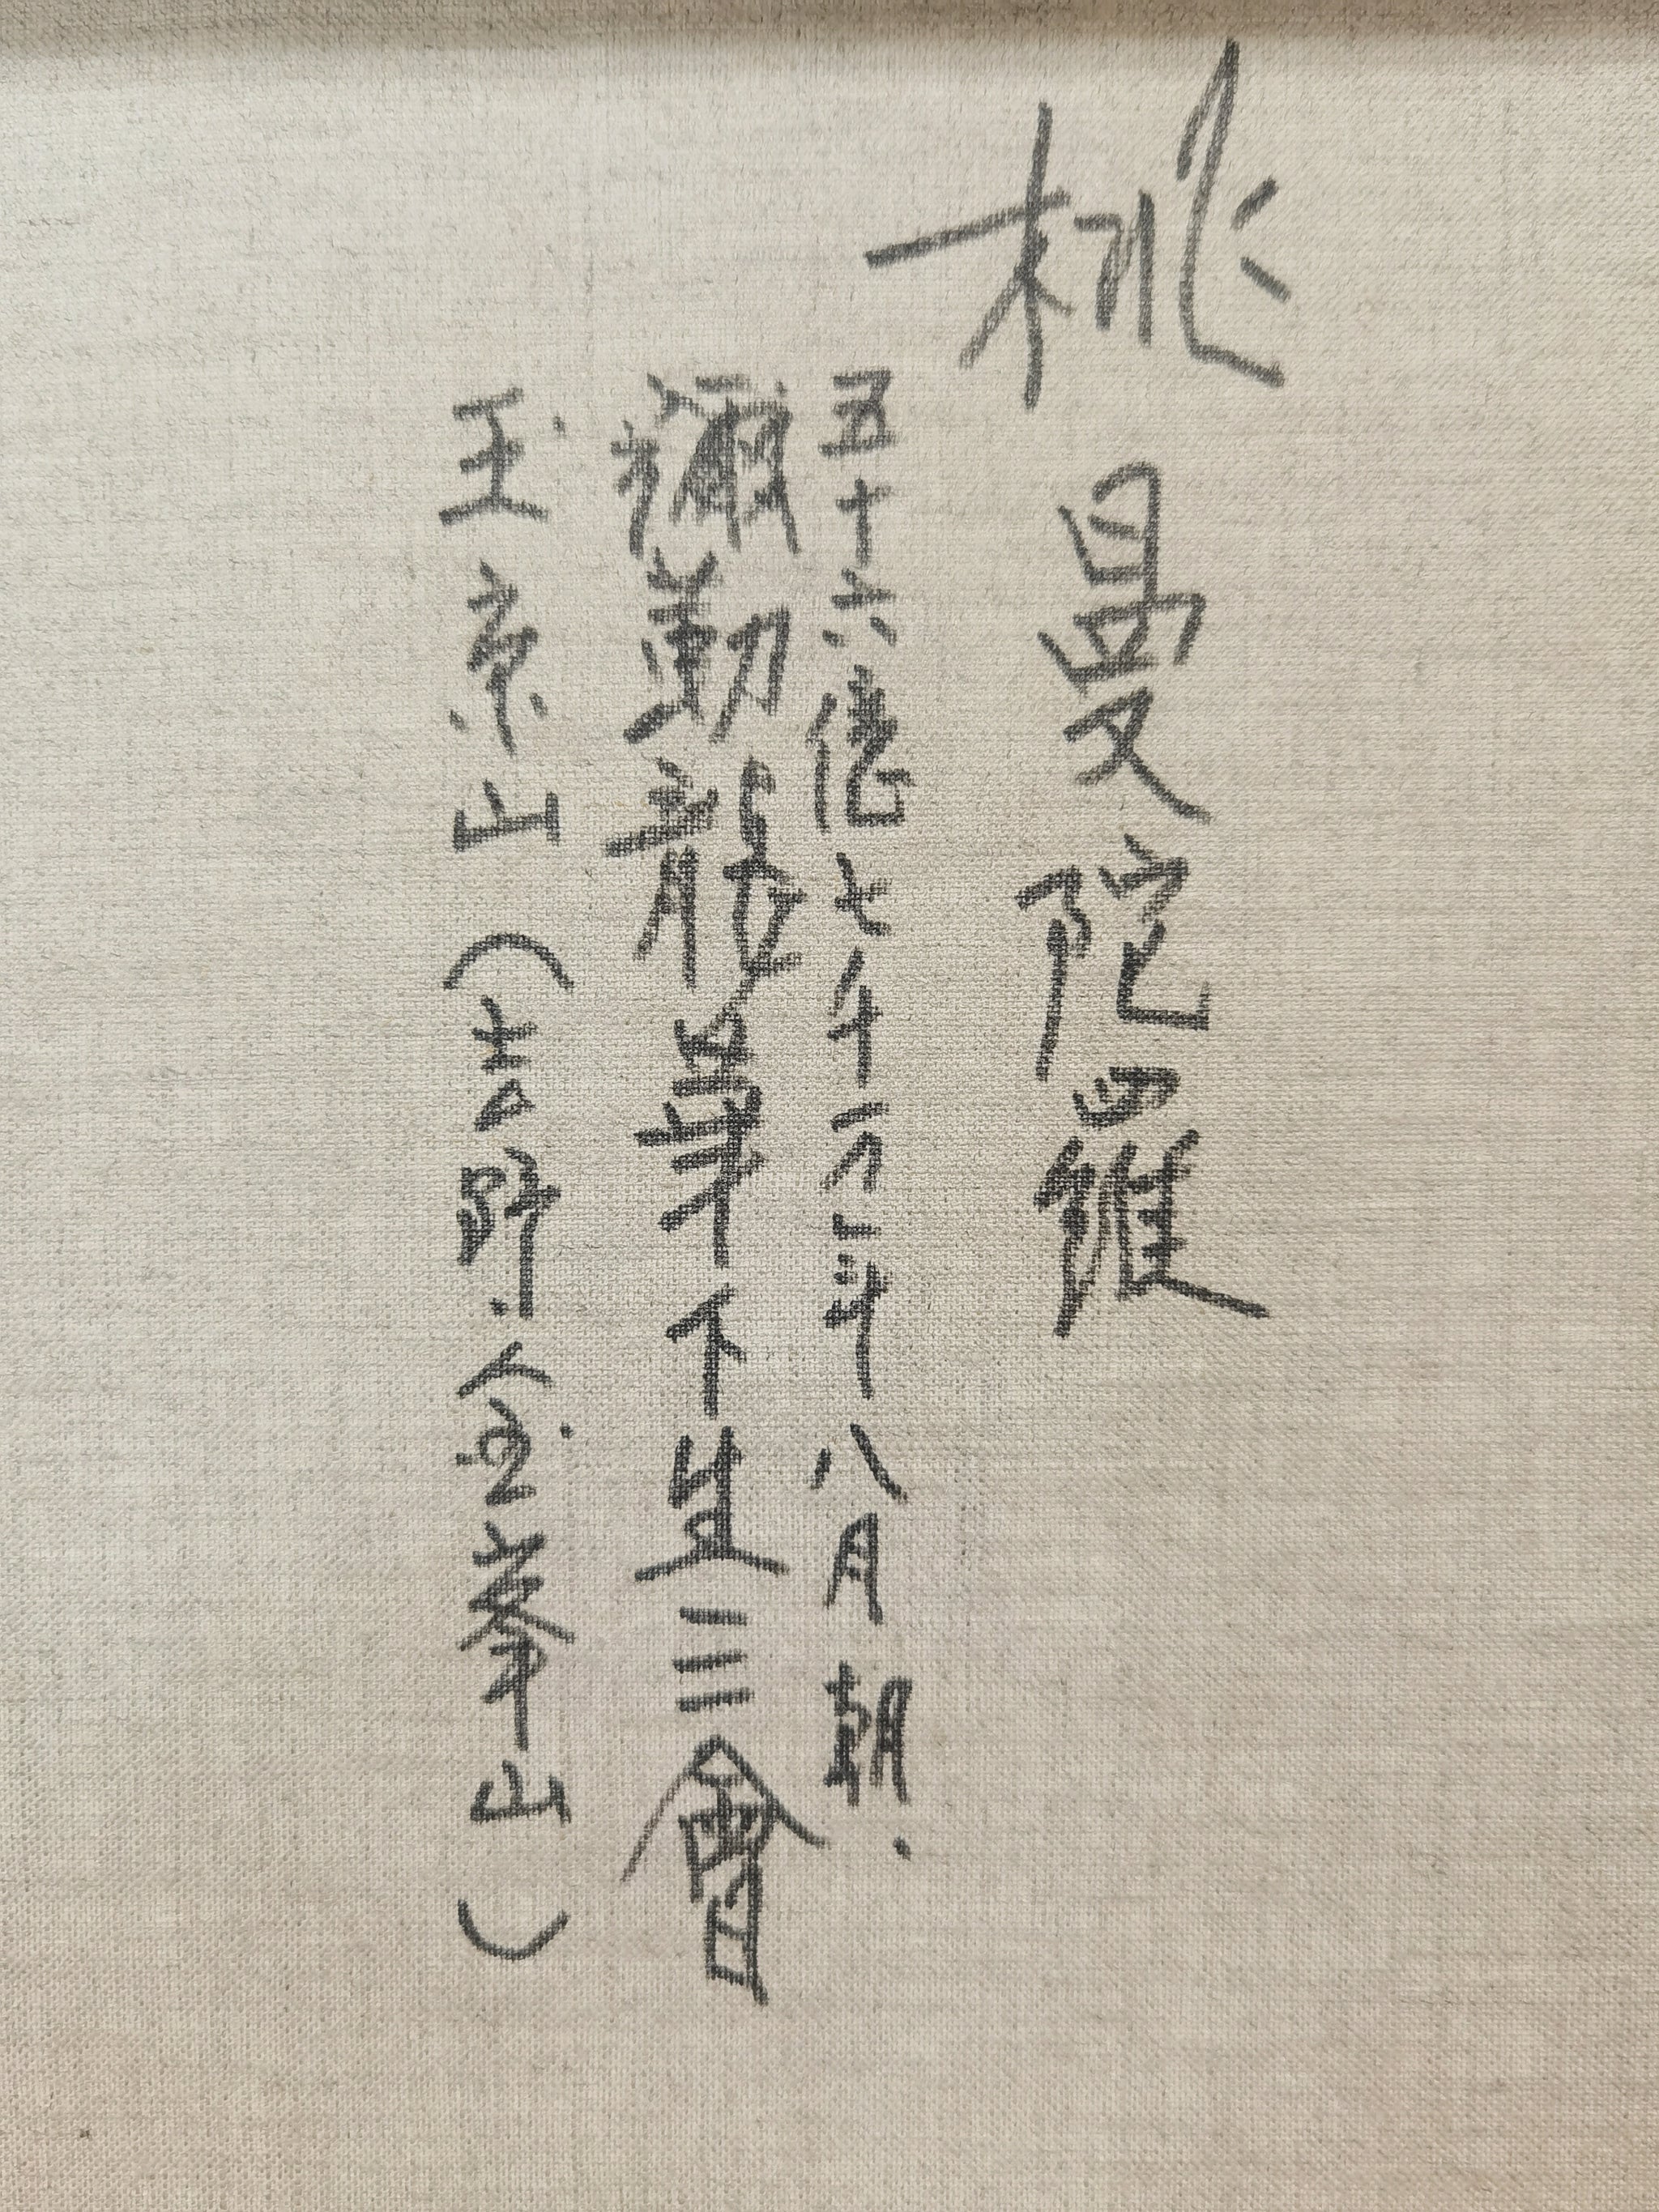 桃曼陀羅
五十六億七千万年八月朝.
彌勒龍華下生三會
玉京山(吉野.金峯山)